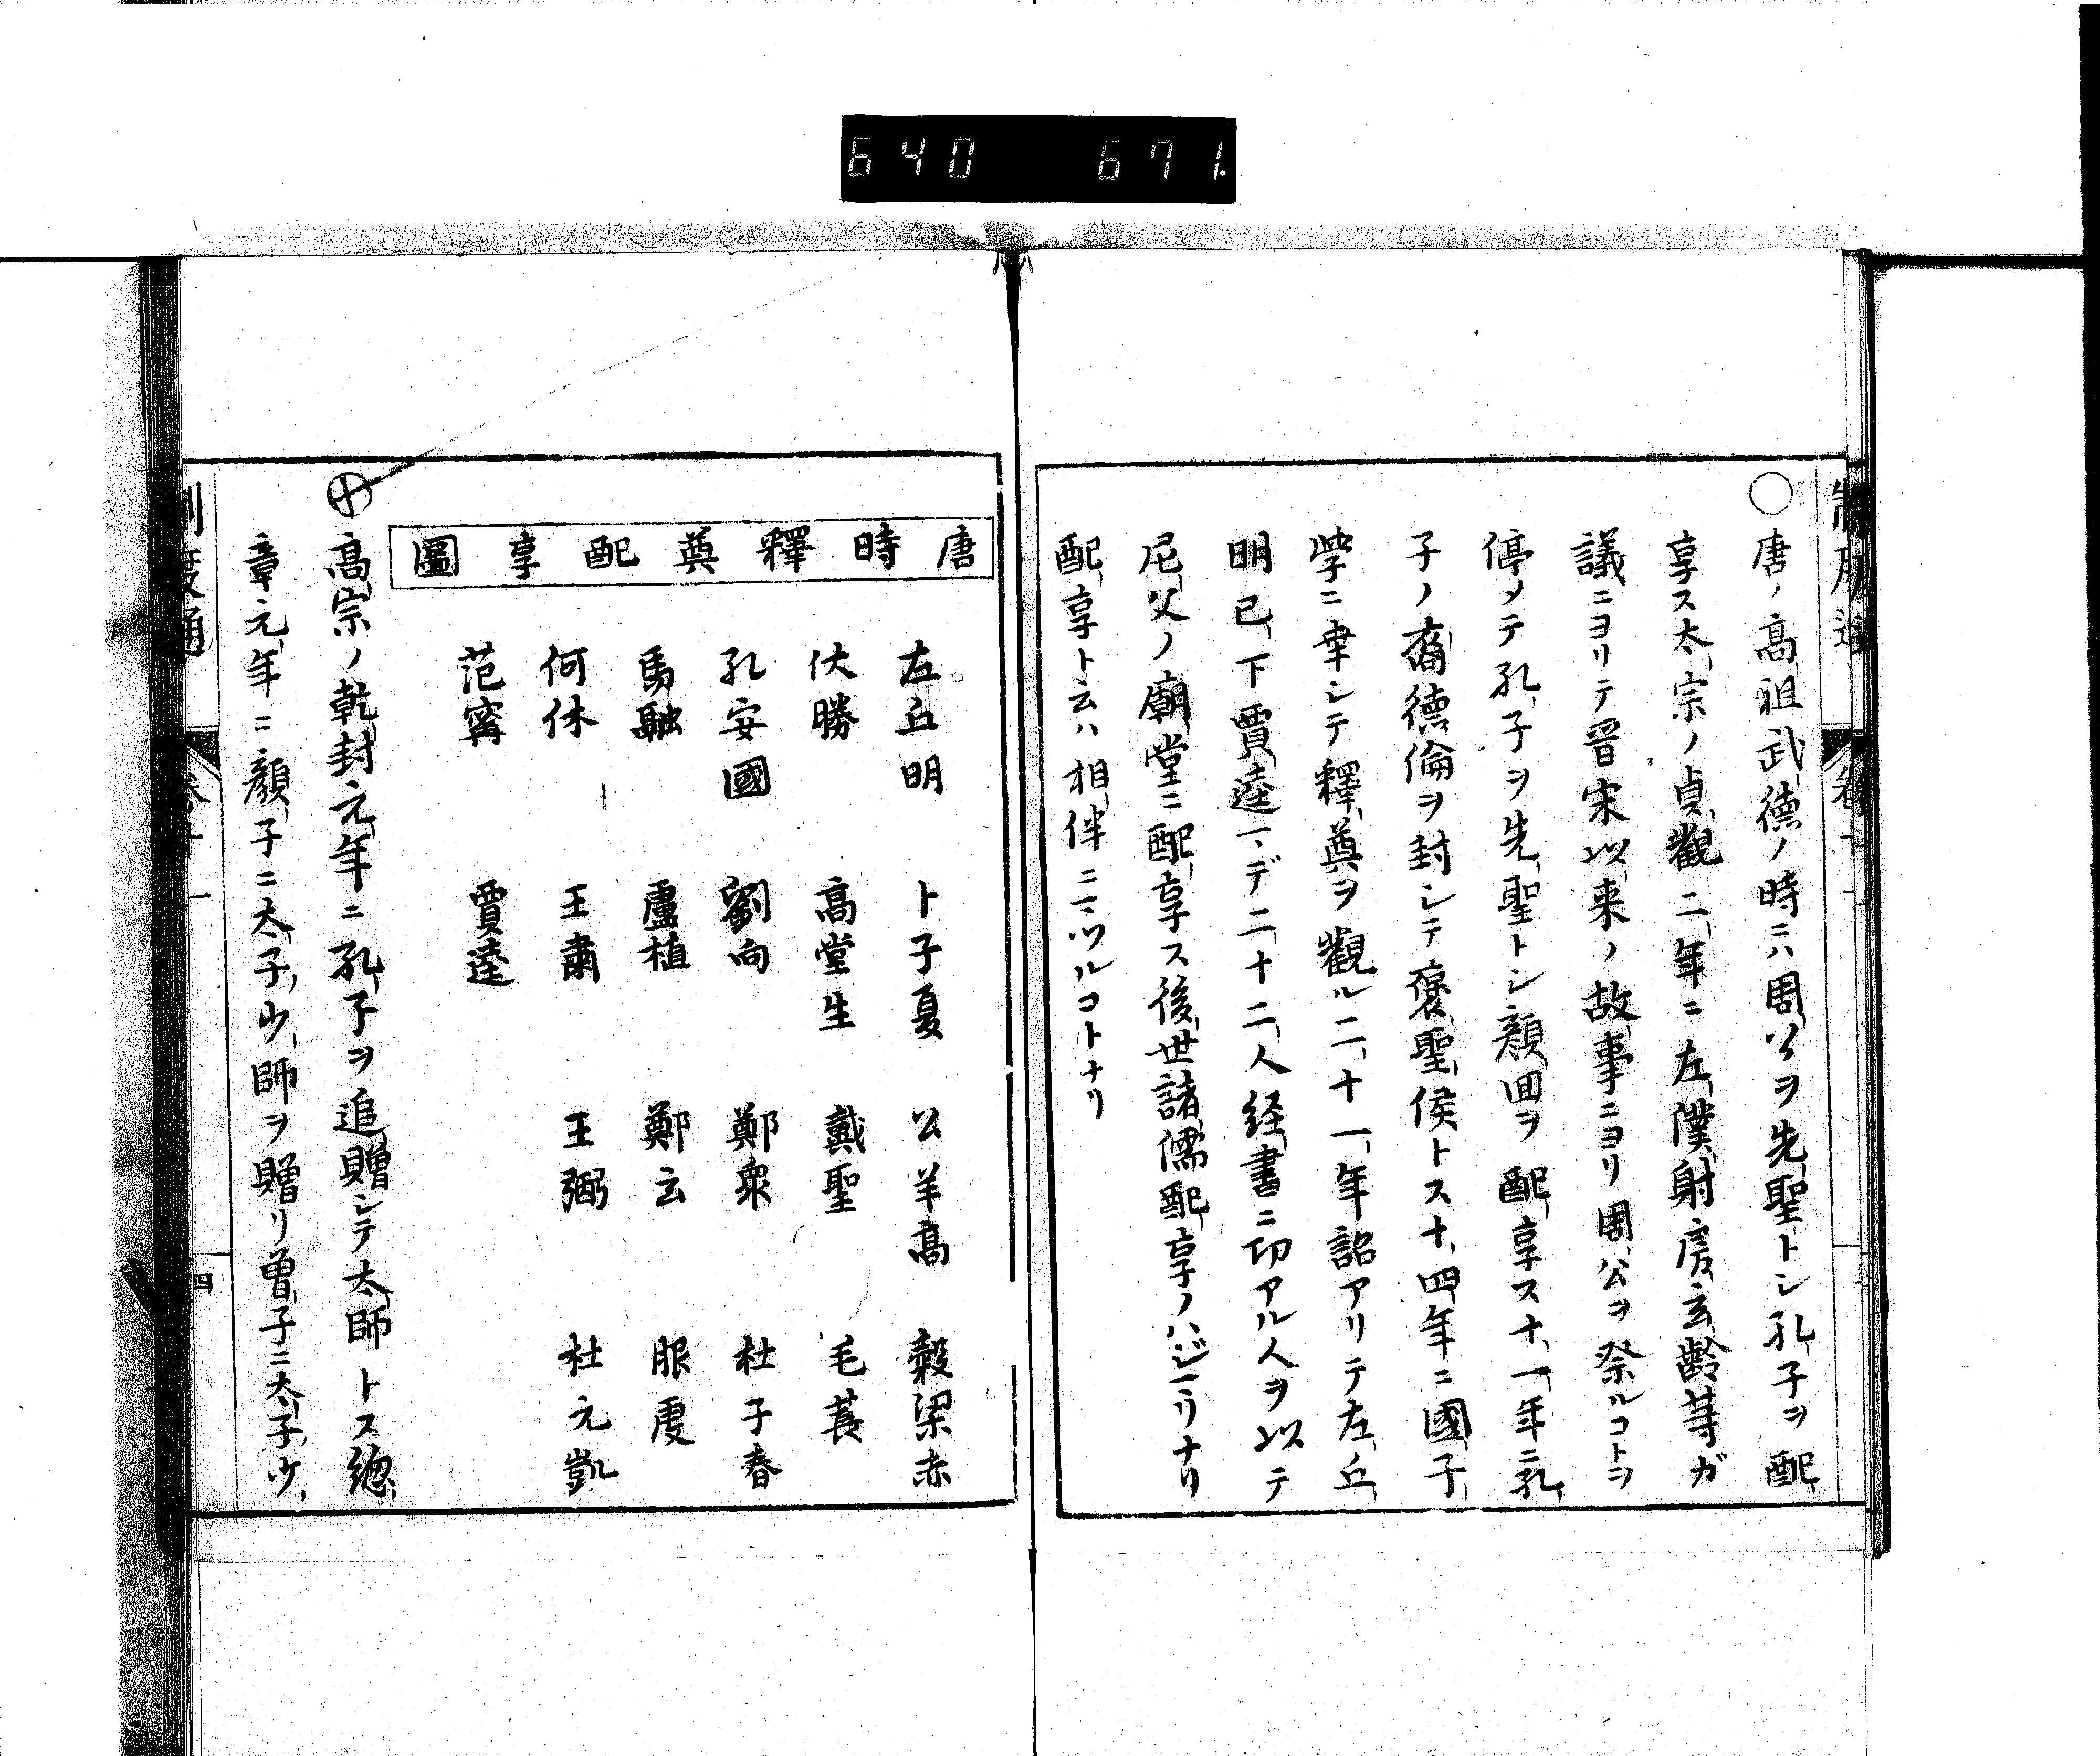 640 671.
制度通 卷十一
○唐ノ高祖武徳ノ時ニハ周公ヲ先聖トシ孔子ヲ配
享ス太宗ノ貞觀二年ニ左僕射房玄齡等ガ
議ニヨリテ晋宋以来ノ故事ニヨリ周公ヲ祭ルコトヲ
停メテ孔子ヲ先聖トシ顔回ヲ配享ス十一年ニ孔
子ノ裔德倫ヲ封シテ褒聖侯トス十四年ニ國子
學ニ幸シテ釋奠ヲ觀ル二十一年詔アリテ左丘
明已下賈逵マデ二十二人経書ニ功アル人ヲ以テ
尼父ノ廟堂ニ配享ス後世諸儒配享ノハジマリナリ
配享ト云ハ相伴ニマツルコトナリ
唐時釋奠配享圖
左丘明 卜子夏 公羊高 穀梁赤
伏勝 高堂生 戴聖 毛萇
孔安國 劉向 鄭衆 杜子春
馬融 盧植 鄭玄 服虔
何休 王肅 王弼 杜元凱
范甯 賈逵
高宗ノ乾封元年ニ孔子ヲ追贈シテ太師トス總
章元年ニ顔子ニ太子少師ヲ贈リ曽子ニ太子少
制度通 卷十一 四